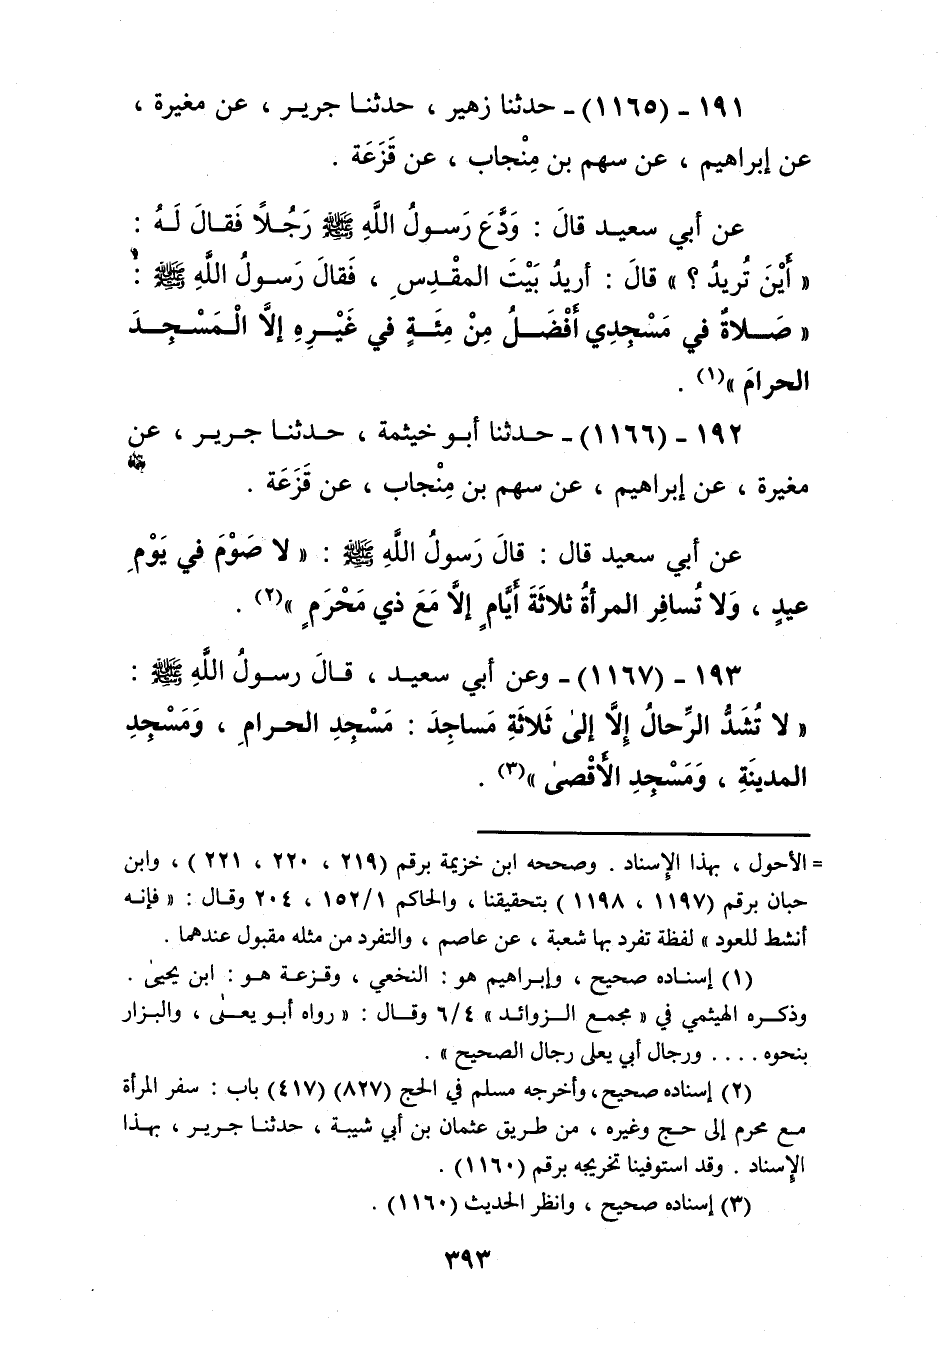 ١٩١ - (١١٦٥) - حدثنا زهير ، حدثنا جرير ، عن مغيرة ،
عن إبراهيم ، عن سهم بن مِنْجاب ، عن قَزَعَة .
عن أبي سعيد قالَ : وَدَّعَ رَسولُ اللَّهِ ﷺ رَجُلاً فَقالَ لَهُ :
« أَيْنَ تُرِيدُ ؟ » قالَ : أريدُ بَيْتَ المقْدِسِ ، فَقالَ رَسولُ اللَّهِ ﷺ :
« صَلاةٌ في مَسْجِدِي أَفْضَلُ مِنْ مِئَةٍ في غَيْرِهِ إلاَّ الْمَسْجِدَ
الحرامَ »(١) .
١٩٢ - (١١٦٦) - حدثنا أبو خيثمة ، حدثنا جرير ، عن
مغيرة ، عن إبراهيم ، عن سهم بن مِنْجاب ، عن قَزَعَة .
عن أبي سعيد قال : قالَ رَسولُ اللَّهِ ﷺ : « لا صَوْمَ في يَوْمِ
عيدٍ ، وَلا تُسافِر المرأةُ ثلاثَةَ أَيَّامٍ إلاَّ مَعَ ذي مَحْرَمٍ »(٢) .
١٩٣ - (١١٦٧) - وعن أبي سعيد ، قالَ رسولُ اللَّهِ ﷺ :
« لا تُشَدُّ الرِّحالُ إِلاَّ إلىٰ ثَلاثَةِ مَساجِدَ : مَسْجِدِ الحرامِ ، وَمَسْجِدِ
المدينَةِ ، وَمَسْجِدِ الأَقْصىٰ »(٣) .
= الأحول ، بهذا الإسناد . وصححه ابن خزيمة برقم (٢١٩ ، ٢٢٠ ، ٢٢١ ) ، وابن
حبان برقم (١١٩٧ ، ١١٩٨ ) بتحقيقنا ، والحاكم ١/١٥٢ ، ٢٠٤ وقال : « فإنه
أنشط للعود » لفظة تفرد بها شعبة ، عن عاصم ، والتفرد من مثله مقبول عندهما .
(١) إسناده صحيح ، وإبراهيم هو : النخعي ، وقزعة هو : ابن يحيىٰ .
وذكره الهيثمي في « مجمع الزوائد » ٦/٤ وقال : « رواه أبو يعلىٰ ، والبزار
بنحوه .... ورجال أبي يعلى رجال الصحيح » .
(٢) إسناده صحيح، وأخرجه مسلم في الحج (٨٢٧) (٤١٧) باب : سفر المرأة
مع محرم إلى حج وغيره ، من طريق عثمان بن أبي شيبة ، حدثنا جرير ، بهذا
الإسناد . وقد استوفينا تخريجه برقم (١١٦٠) .
(٣) إسناده صحيح ، وانظر الحديث (١١٦٠) .
٣٩٣